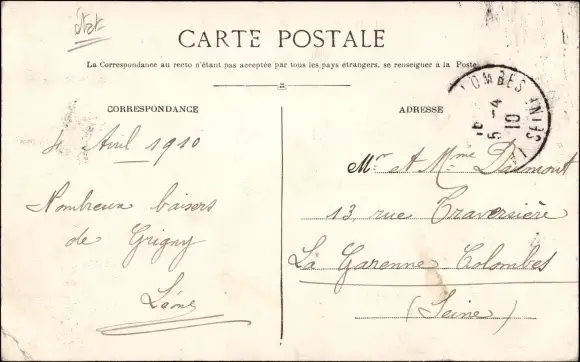 état
CARTE POSTALE
La Correspondance au recto n'étant pas acceptée par tous les pays étrangers, se renseigner à la Poste
CORRESPONDANCE
ADRESSE
4 Avril 1910
Nombreux baisers
de Grigny
Léone
Mr et Mme Daumont
13, rue Traversière
La Garenne Colombes
(Seine)
5 -4
10